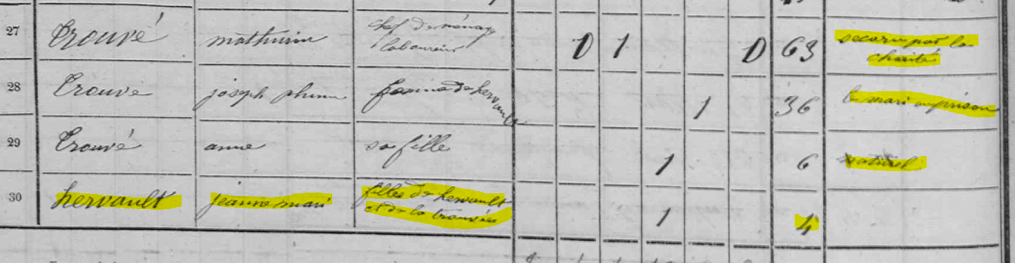 27 Trouvé mathurin chef de ménag
laboureur D 1 D 63 secouru par la
charité
28 Trouvé joseph phine femme de hervault 1 36 le mari en prison
29 Trouvé anne sa fille 1 6 naturel
30 hervault jeanne mari fille de hervault
et de la trouvée 1 4